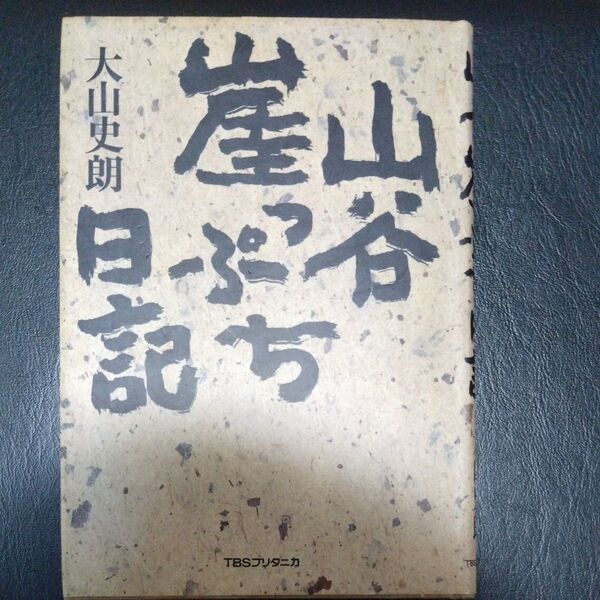 山谷
崖っぷち
日記
大山史朗
TBSブリタニカ